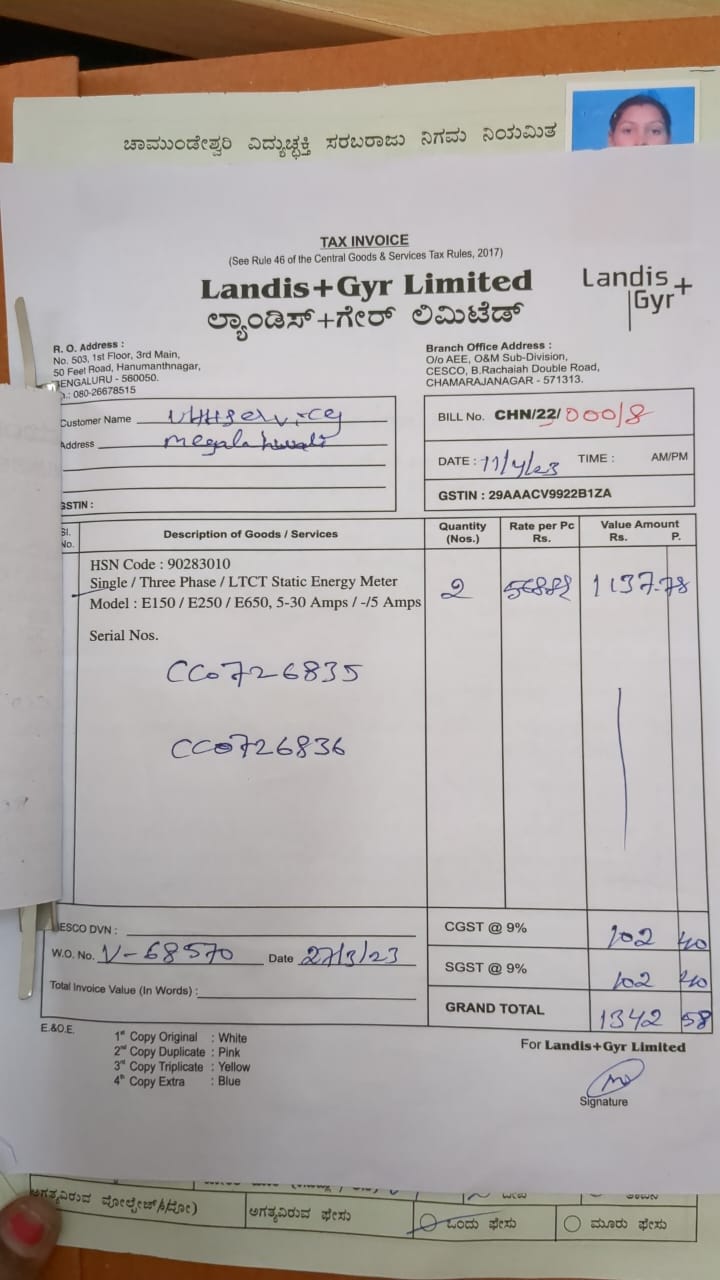 ಚಾಮುಂಡೇಶ್ವರಿ ವಿದ್ಯುಚ್ಛಕ್ತಿ ಸರಬರಾಜು ನಿಗಮ ನಿಯಮಿತ
TAX INVOICE
(See Rule 46 of the Central Goods & Services Tax Rules, 2017)
Landis+Gyr Limited
ಲ್ಯಾಂಡಿಸ್+ಗೇರ್ ಲಿಮಿಟೆಡ್
Landis+
Gyr
R. O. Address :
No. 503, 1st Floor, 3rd Main,
50 Feet Road, Hanumanthnagar,
BENGALURU - 560050.
.: 080-26678515
Branch Office Address :
O/o AEE, O&M Sub-Division,
CESCO, B.Rachaiah Double Road,
CHAMARAJANAGAR - 571313.
Customer Name
Address
GSTIN :
BILL No. CHN/22/ 00018
DATE : 11/4/23 TIME : AM/PM
GSTIN : 29AAACV9922B1ZA
Sl. No. Description of Goods / Services Quantity (Nos.) Rate per Pc Rs. Value Amount Rs. P.
HSN Code : 90283010
Single / Three Phase / LTCT Static Energy Meter 2 1137.78
Model : E150 / E250 / E650, 5-30 Amps / -/5 Amps
Serial Nos.
CC0726835
CC0726836
ESCO DVN :
W.O. No. V-68570 Date 27/3/23
Total Invoice Value (In Words) :
CGST @ 9% 102 40
SGST @ 9% 102 40
GRAND TOTAL 1342 58
E.&O.E.
1st Copy Original : White
2nd Copy Duplicate : Pink
3rd Copy Triplicate : Yellow
4th Copy Extra : Blue
For Landis+Gyr Limited
Signature
ಅಗತ್ಯವಿರುವ ಅಗತ್ಯವಿರುವ ಫೇಸು ಒಂದು ಫೇಸು ಮೂರು ಫೇಸು